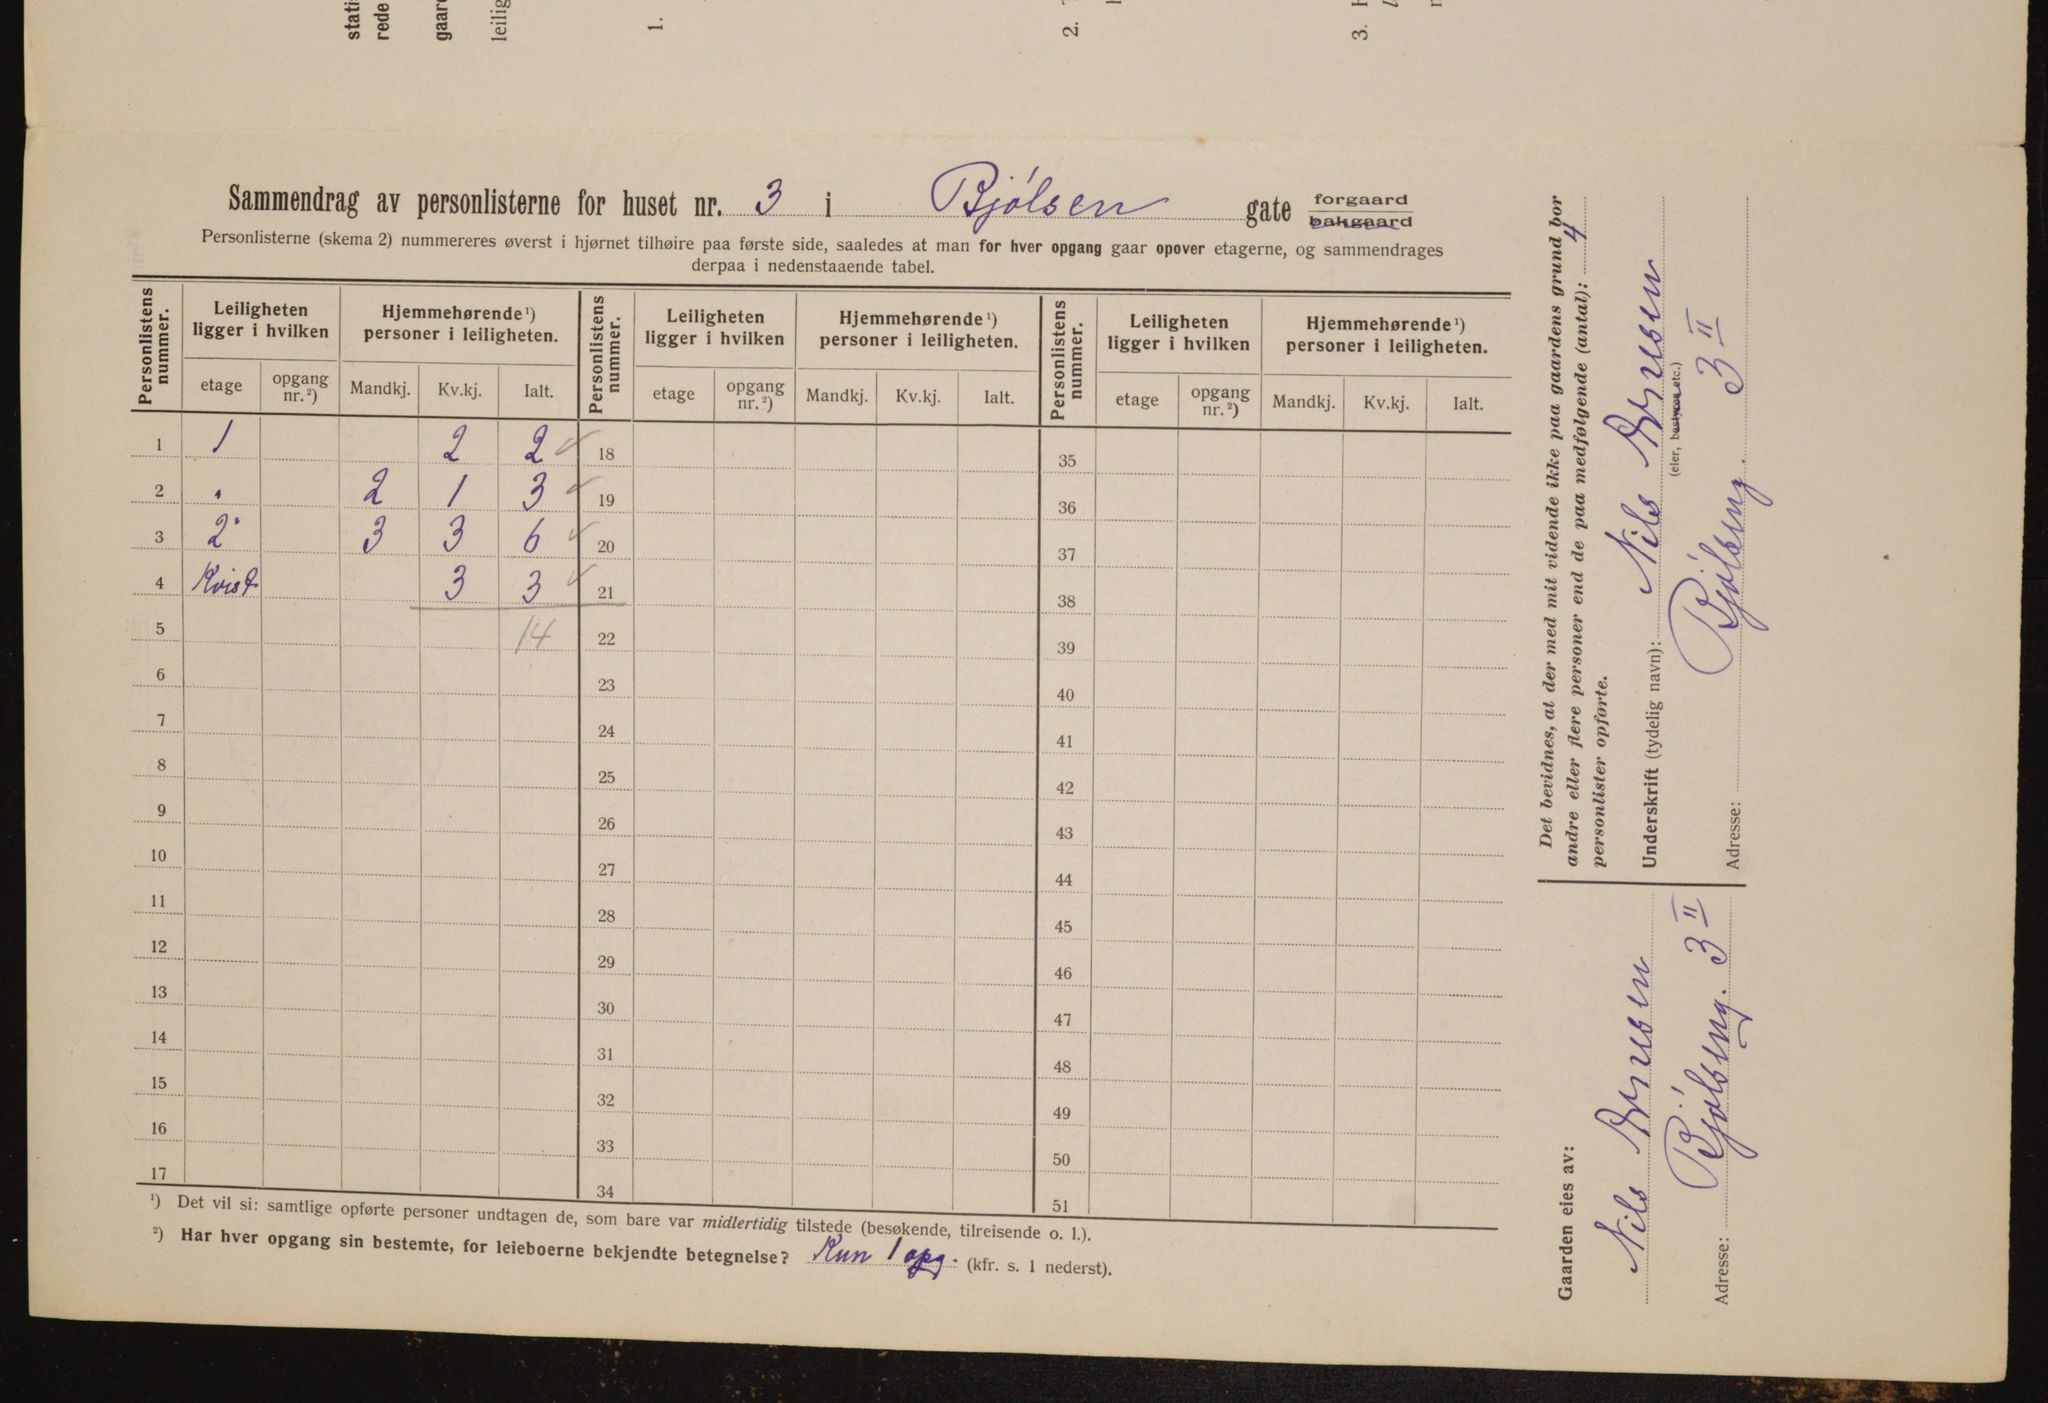 stati
rede
gaard
leilig
1.
2.
3.
Sammendrag av personlisterne for huset nr. 3 i Bjølsen gate forgaard
bakgaard
Personlisterne (skema 2) nummereres øverst i hjørnet tilhøire paa første side, saaledes at man for hver opgang gaar opover etagerne, og sammendrages
derpaa i nedenstaaende tabel.
Personlistens nummer. Leiligheten ligger i hvilken Hjemmehørende ¹) personer i leiligheten. Personlistens nummer. Leiligheten ligger i hvilken Hjemmehørende ¹) personer i leiligheten. Personlistens nummer. Leiligheten ligger i hvilken Hjemmehørende ¹) personer i leiligheten.
etage opgang nr. ²) Mandkj. Kv.kj. Ialt. etage opgang nr. ²) Mandkj. Kv.kj. Ialt. etage opgang nr. ²) Mandkj. Kv.kj. Ialt.
1 1 2 2 18 35
2 " 2 1 3 19 36
3 2 3 3 6 20 37
4 Kvist 3 3 21 38
5 14 22 39
6 23 40
7 24 41
8 25 42
9 26 43
10 27 44
11 28 45
12 29 46
13 30 47
14 31 48
15 32 49
16 33 50
17 34 51
¹) Det vil si: samtlige opførte personer undtagen de, som bare var midlertidig tilstede (besøkende, tilreisende o. l.).
²) Har hver opgang sin bestemte, for leieboerne bekjendte betegnelse? Kun 1 opg. (kfr. s. 1 nederst).
Det bevidnes, at der med mit vidende ikke paa gaardens grund bor
andre eller flere personer end de paa medfølgende (antal): 4
personlister opførte.
Underskrift (tydelig navn): Nils
(eier, bestyrer etc.)
Adresse: Bjølseng. 3 II
Gaarden eies av:
Nils
Adresse: Bjølseng. 3 II